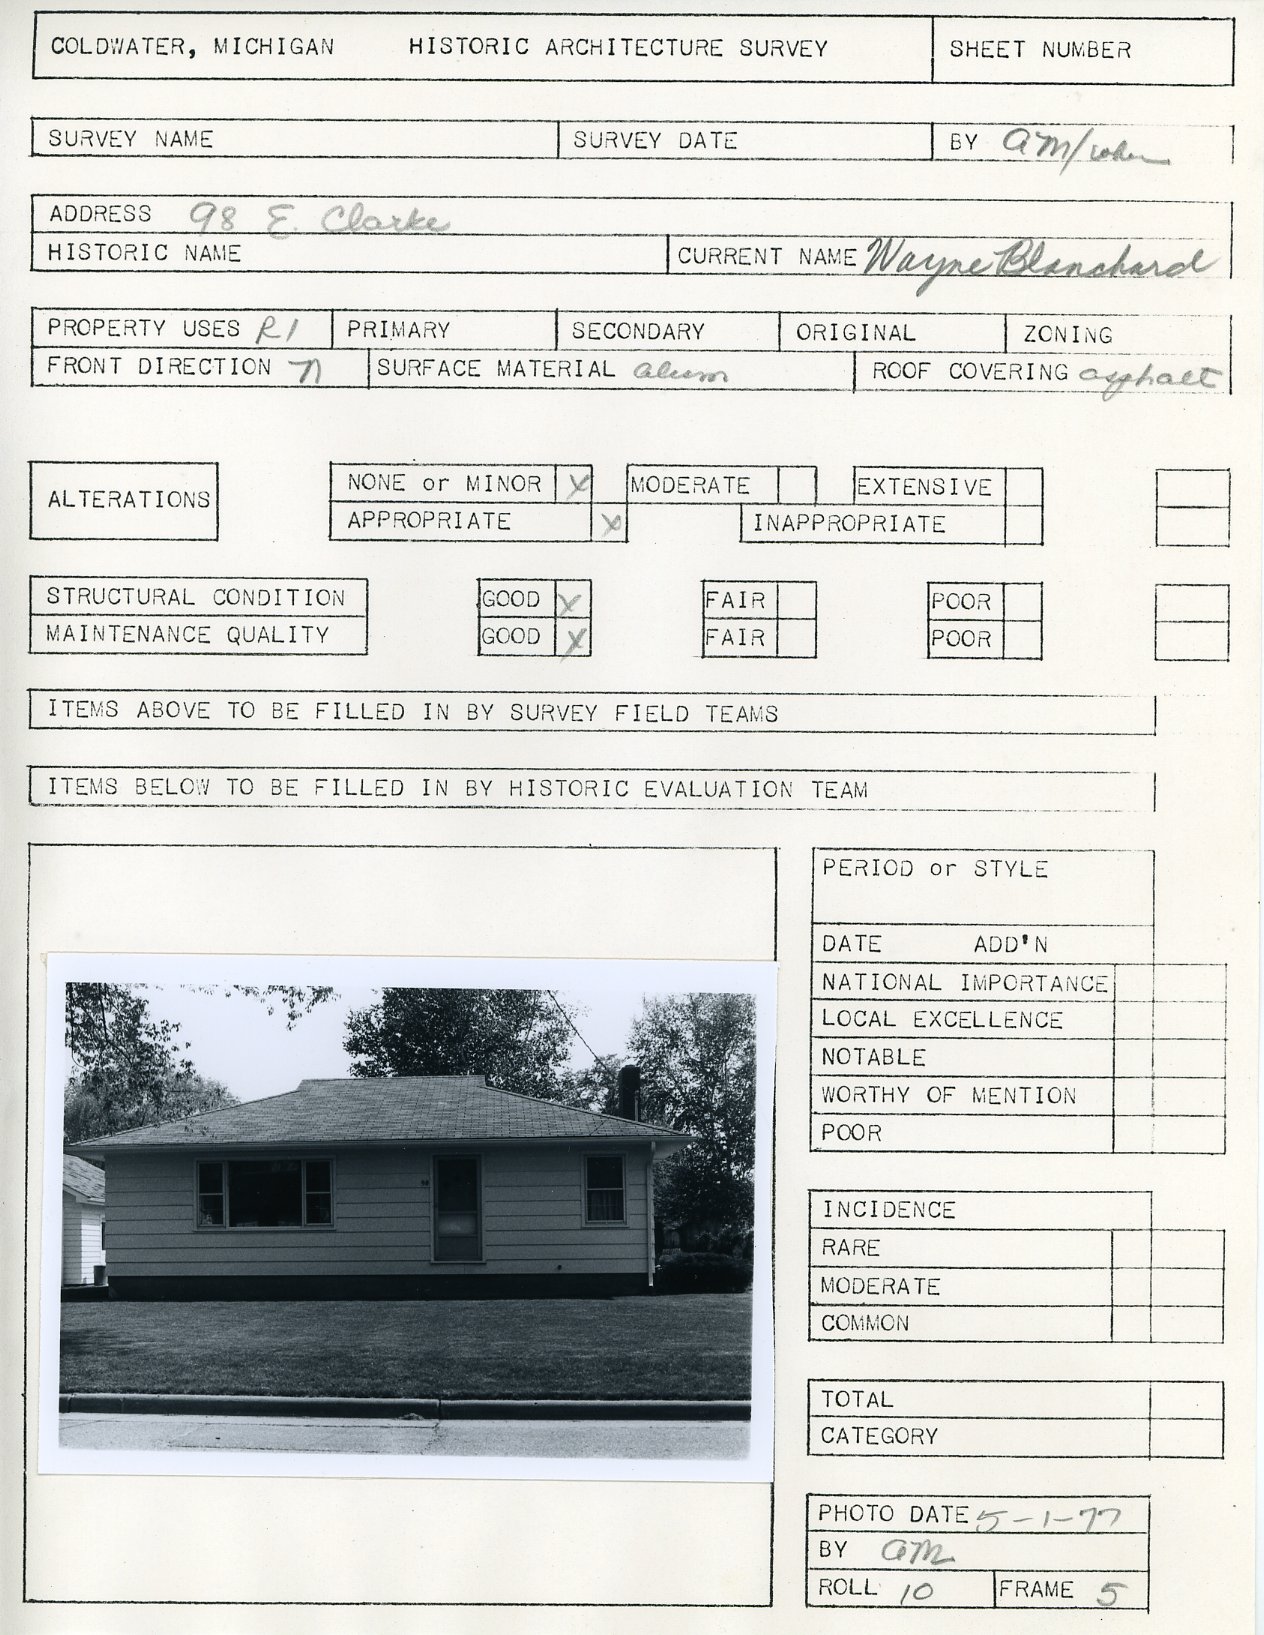 COLDWATER, MICHIGAN HISTORIC ARCHITECTURE SURVEY SHEET NUMBER
SURVEY NAME SURVEY DATE BY AM/
ADDRESS 98 E. Clarke
HISTORIC NAME CURRENT NAME Wayne Blanchard
PROPERTY USES R1 PRIMARY SECONDARY ORIGINAL ZONING
FRONT DIRECTION n SURFACE MATERIAL alum ROOF COVERING asphalt
ALTERATIONS
NONE or MINOR X MODERATE EXTENSIVE
APPROPRIATE X INAPPROPRIATE
STRUCTURAL CONDITION GOOD X FAIR POOR
MAINTENANCE QUALITY GOOD X FAIR POOR
ITEMS ABOVE TO BE FILLED IN BY SURVEY FIELD TEAMS
ITEMS BELOW TO BE FILLED IN BY HISTORIC EVALUATION TEAM
PERIOD or STYLE
DATE ADD'N
NATIONAL IMPORTANCE
LOCAL EXCELLENCE
NOTABLE
WORTHY OF MENTION
POOR
98
INCIDENCE
RARE
MODERATE
COMMON
TOTAL
CATEGORY
PHOTO DATE 5-1-77
BY AM
ROLL 10 FRAME 5